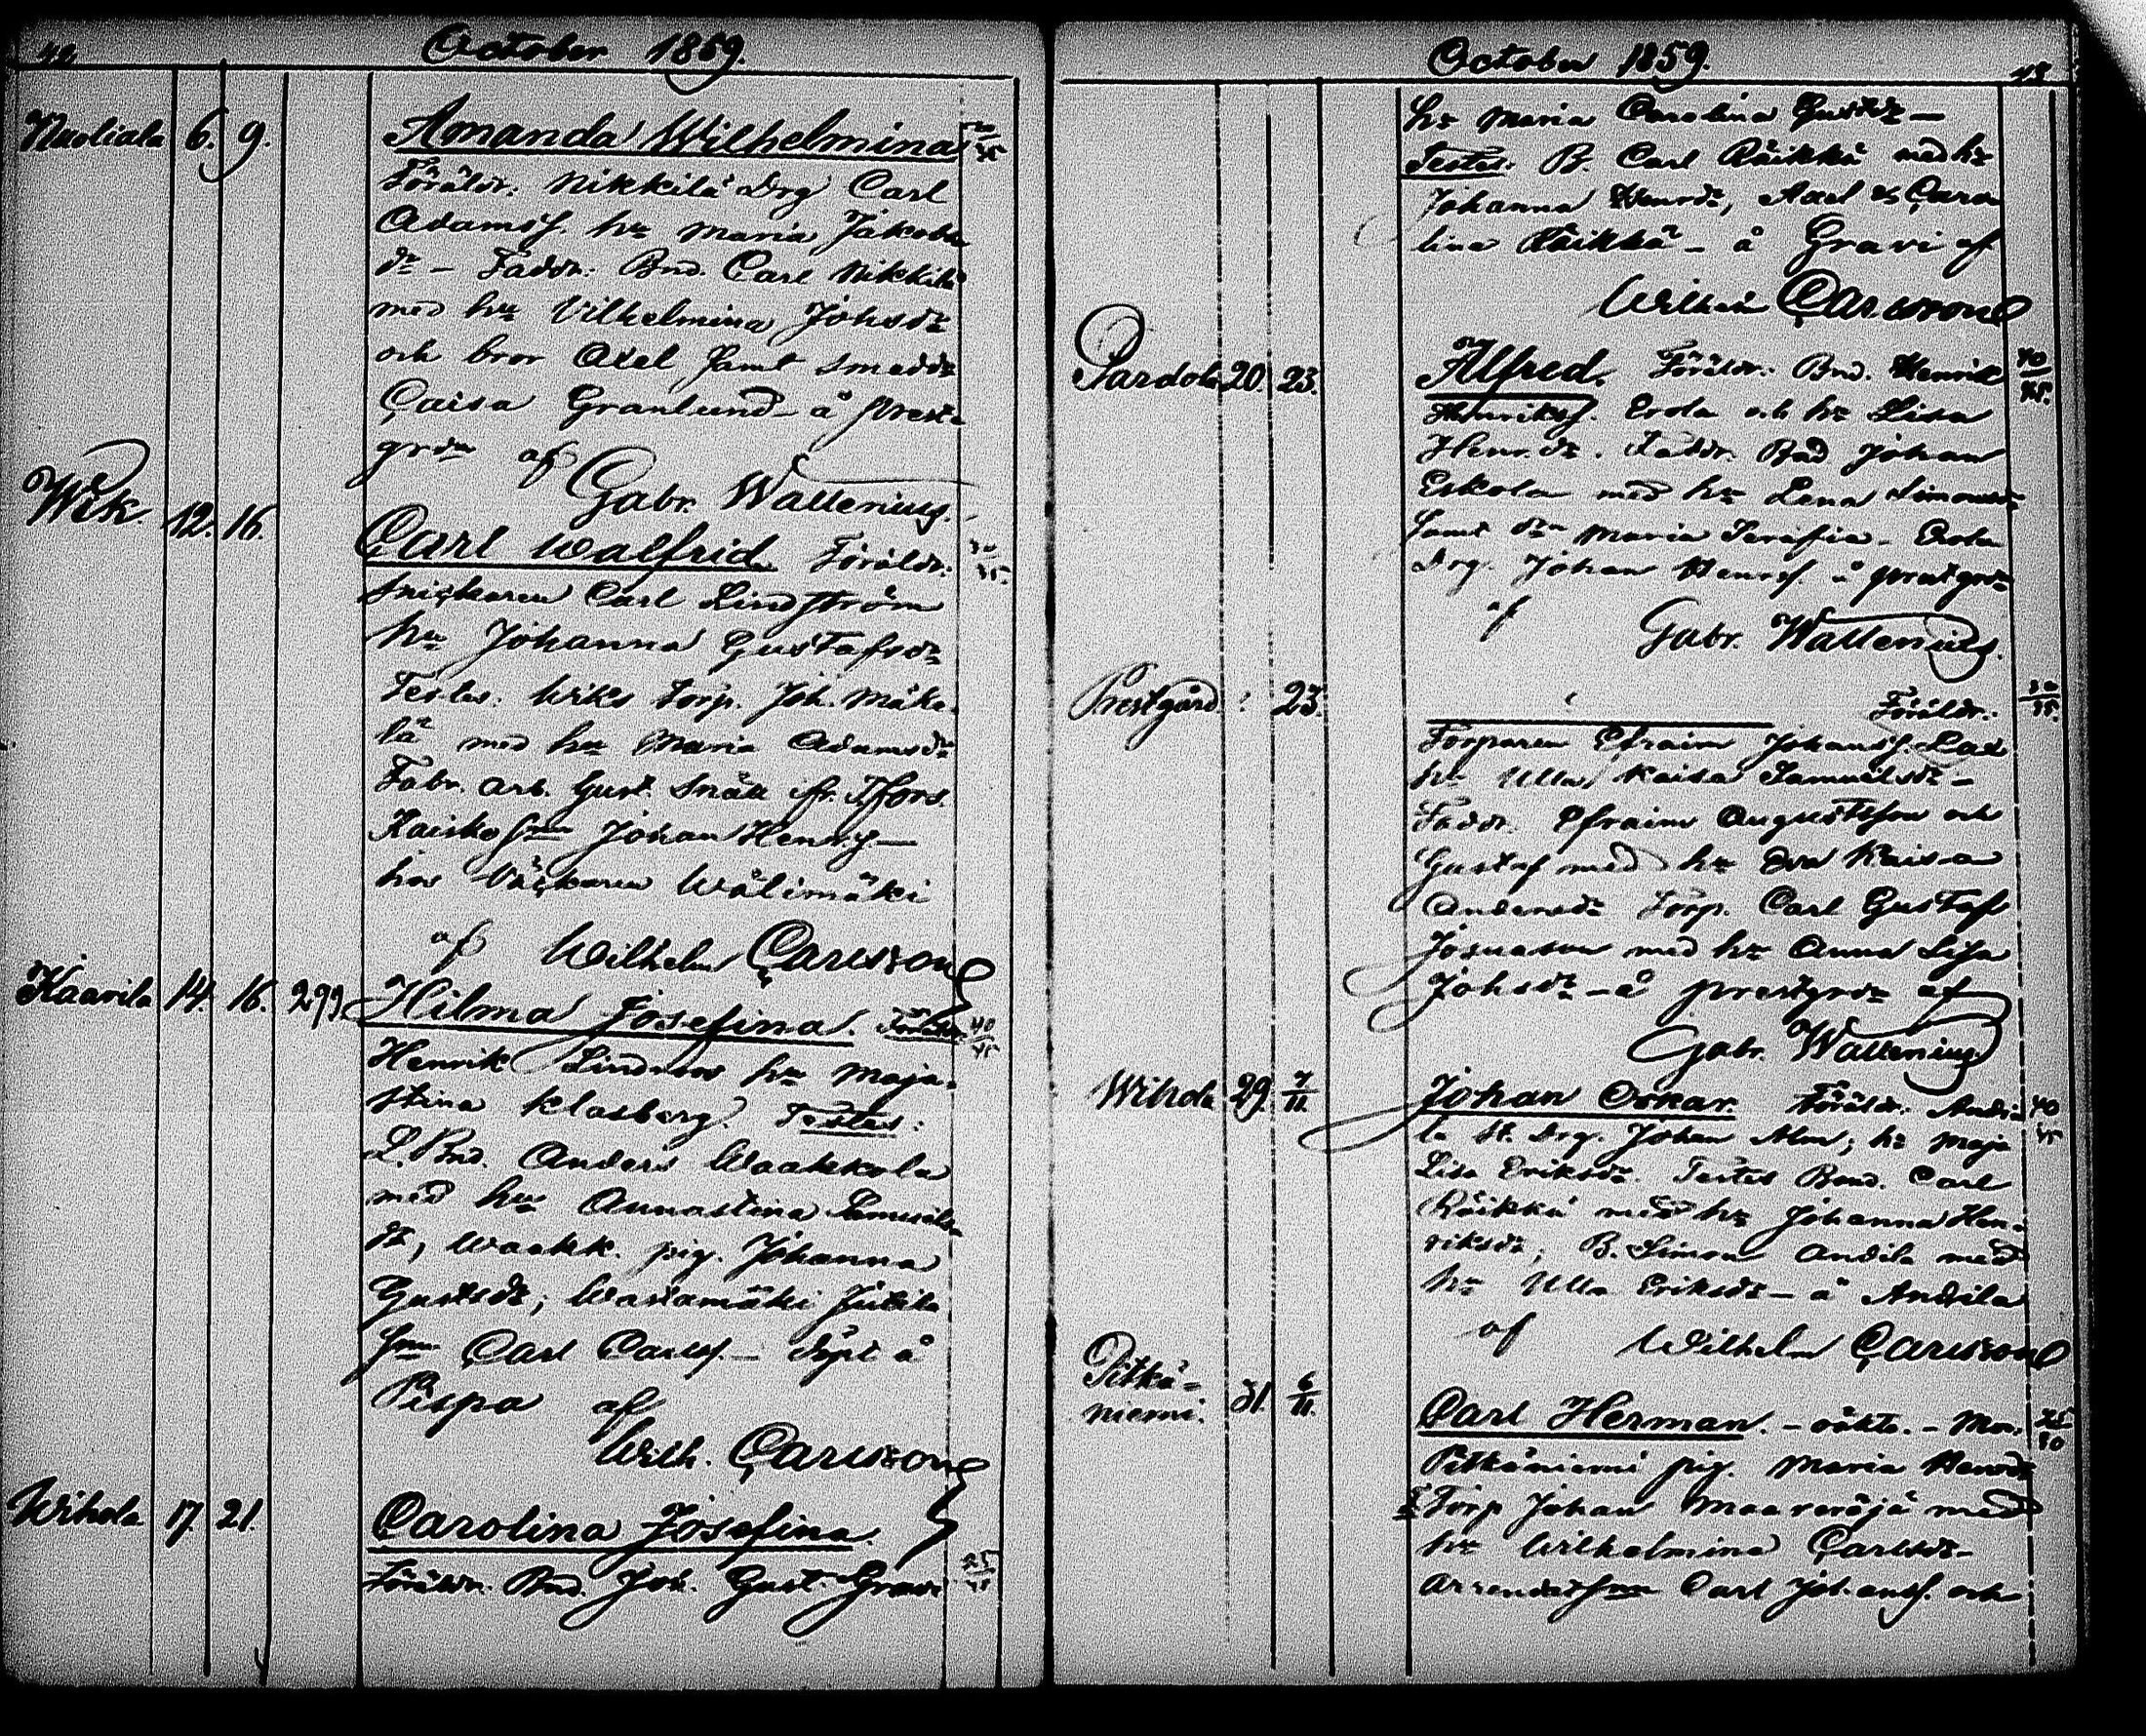 42
October 1859.
Nuoliala 6. 9. Amanda Wilhelmina
Föräldr. Nikkilä Drg Carl
Adamsf. hu Maria Jakobs
dr – Faddr. Bnd. Carl Nikkilä
med hu Vilhelmina Johsdr
och bror Axel samt smeddr
Caisa Granlund å prest-
grdn af
Gabr. Wallenius.
Wik. 12. 16. Carl Walfrid. Föräldr.
snickaren Carl Lindström
hu Johanna Gustafsdr
Testes: Wiks torp. Joh. Mäke-
lä med hu Maria Adamsdr
Fabr. arb. Gust. Snäll fr. Tfors.
Kaisko Johan Henrs. –
hos Väckaren Wälimäki
af Wilhelm Carlsson
Kaarila 14. 16. 299. Hilma Josefina. Föräldr. 40
Henrik Lindroos hu Maja-
stina Klasberg. Testes:
L. Bnd. Anders Waakkola
med hu Annastina Samuels
dr, Waakk. pig. Johanna
Gustsdr; Wastamäki Jutila
Carl Carlsf. – döpt å
Pispa af
Wilh. Carlsson
Wihola 17. 21. Carolina Josefina.
Föräldr. Bnd. Joh. Gust. Gravi
October 1859.
43
hu Maria Carolina Gustdr –
Testes: B. Carl Räikkä med hu
Johanna Henrdr, Axel & Caro
lina Räikkä – å Gravi af
Wilhelm Carlsson
Pardola 20. 23. Alfred. Föräldr. Bnd. Henrik
Henriksf. Erola och hu Lisa
Henr.dr. Faddr. Bnd Johan
Eskola med hu Lena Simonsdr
samt Maria Serafia – Erola
Drg. Johan Henrsf å prestgrdn
af Gabr. Wallenius.
Prestgård 23. Föräldr.
Torparen Efraim Johansf.
hu Ulla Kaisa Samuelsdr –
Faddr. Efraim Augustsson och
Gustaf med hu Eva Kaisa
Andersdr Torp. Carl Gustaf
Josuason med hu Anna Lisa
Johsdr – å prestgrdn af
Gabr. Wallenius
Wihola 29. 7/11. Johan Oskar. Föräldr. Andi- 40
la st. Drg. Johan Alm; hu Maja
Lisa Eriksdr. Testes Bnd. Carl
Räikkä med hu Johanna Hen-
riksdr; B. Simon Andila med
hu Ulla Eriksdr – å Andila
af Wilhelm Carlsson
Pitkä-
niemi. 31. 6/11. Carl Herman. – oäkta. – Mor:
Pitkäniemi pig. Maria Henrdr
Torp Johan Maareräjä med
hu Wilhelmina Carlsdr –
Carl Johansf. och